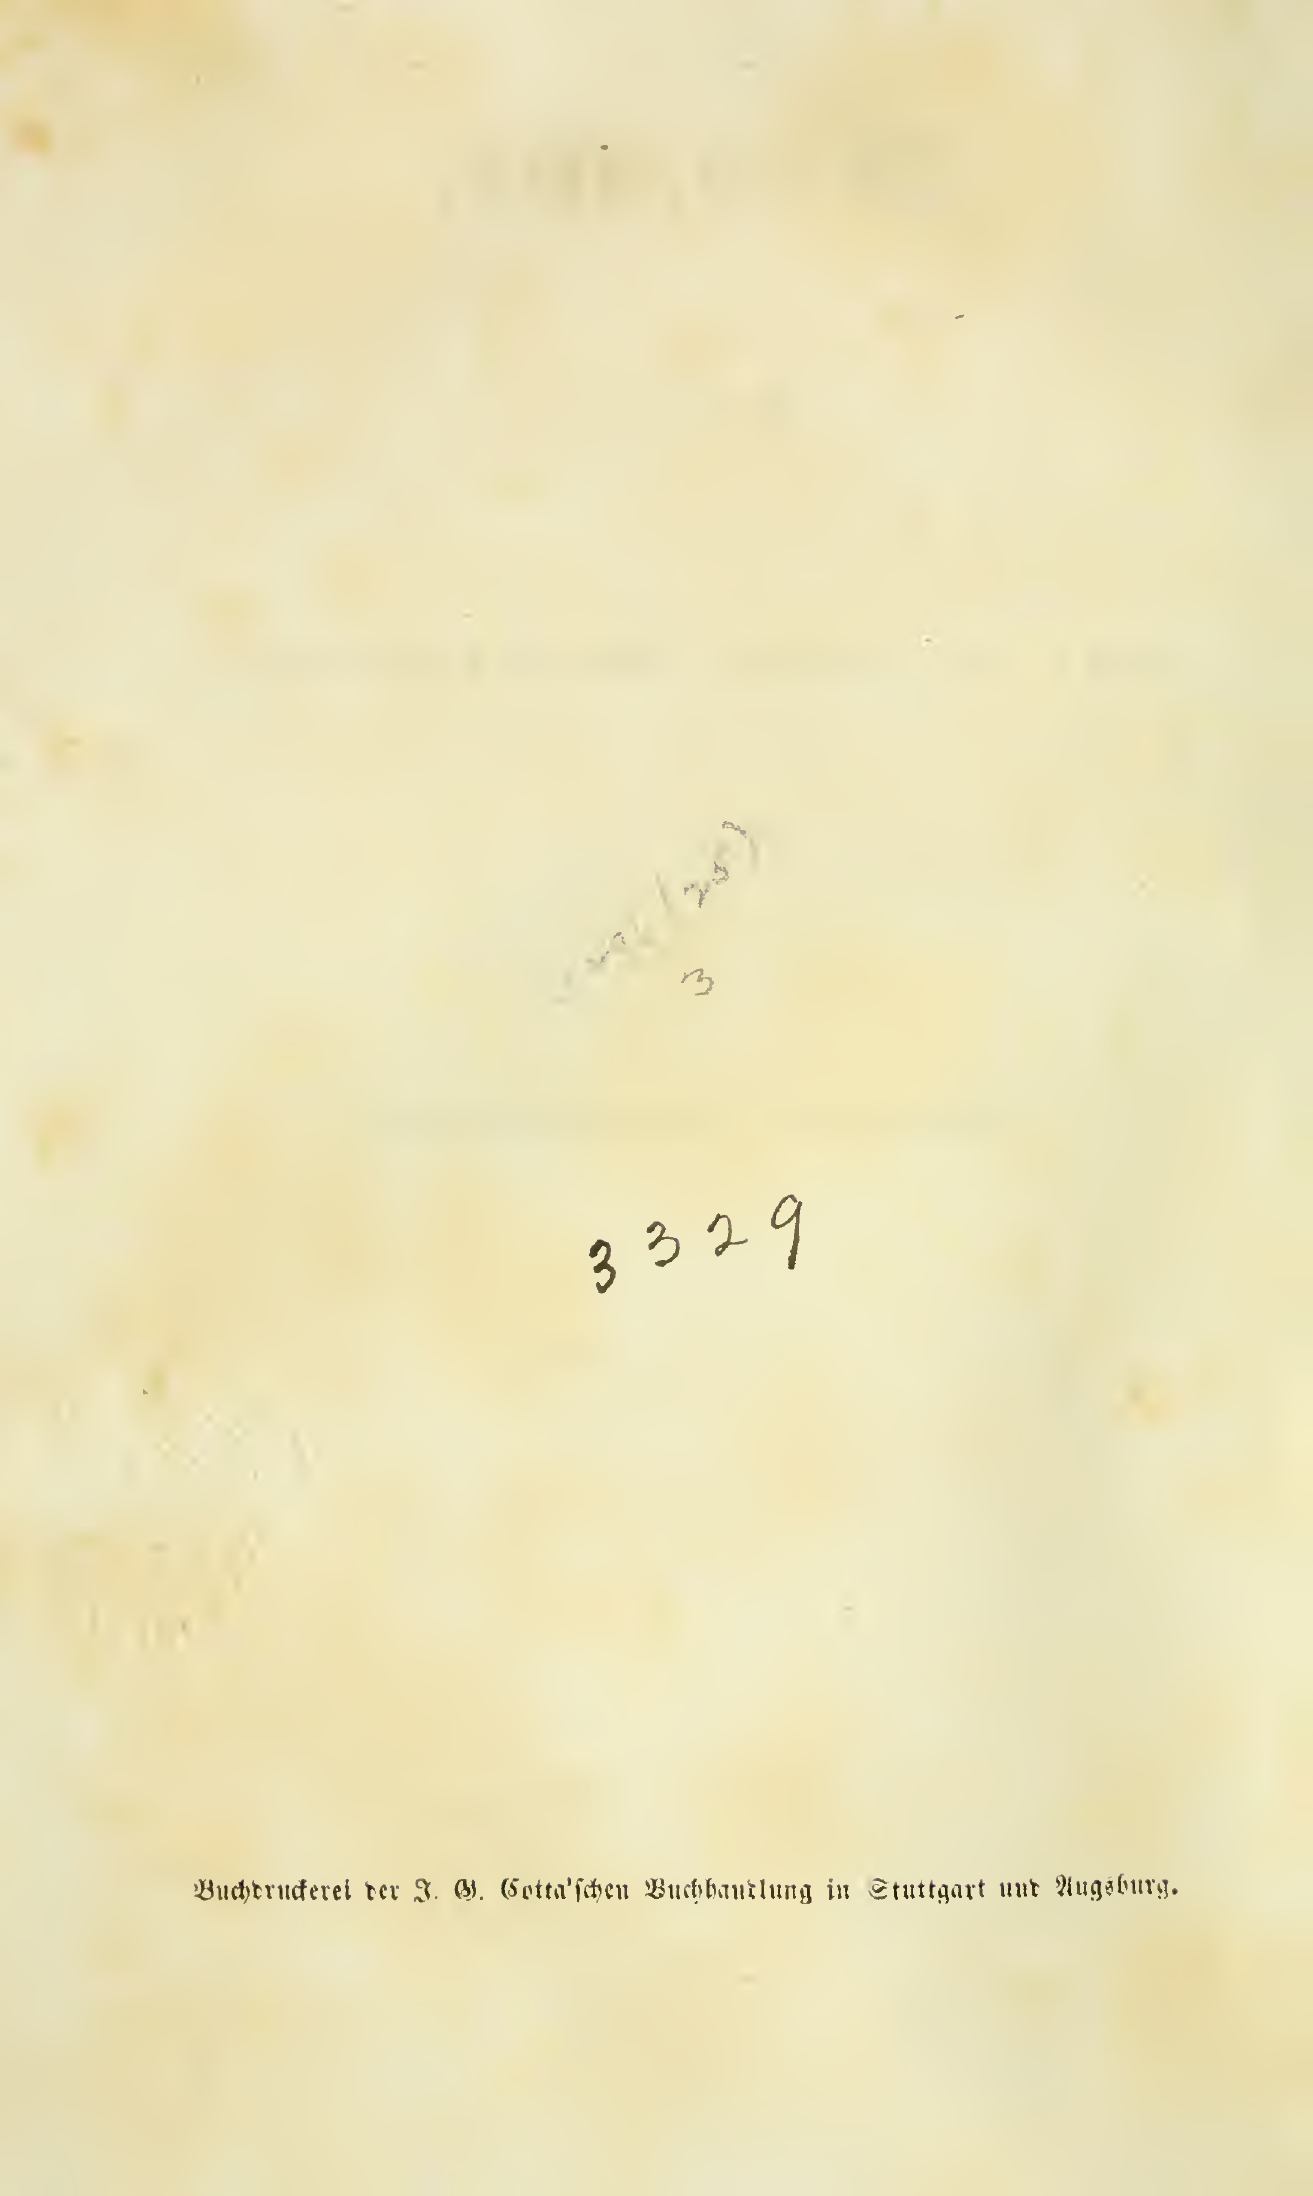 3
3329
Buchdruckerei der J. G. Cotta'schen Buchhandlung in Stuttgart und Augsburg.